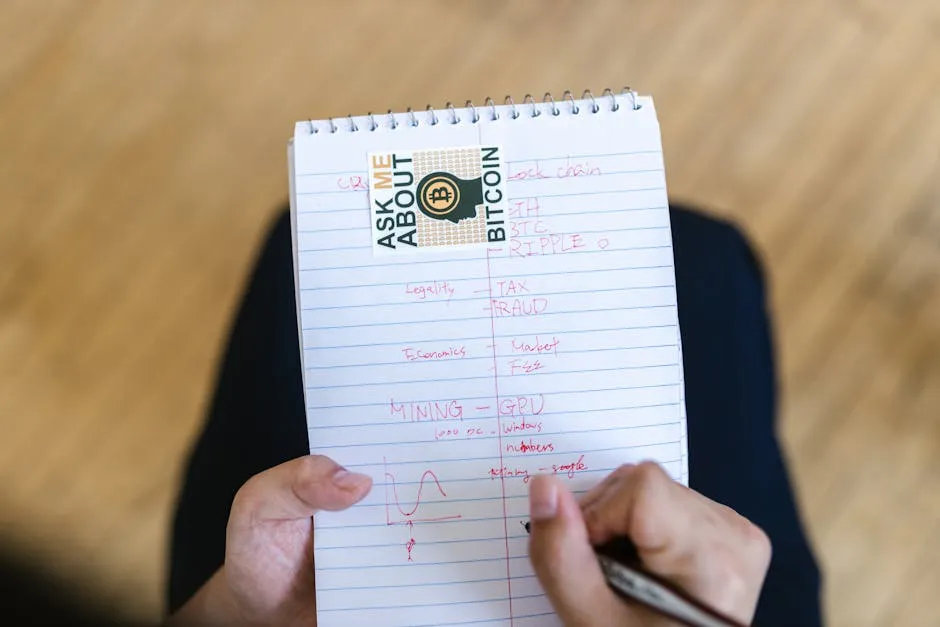 ASK ME
ABOUT
BITCOIN
chain
ETH
BTC
RIPPLE
Legality — TAX
FRAUD
Economics - Market
FEE
MINING — GPU
1000 pc - Windows
numbers
Mining - google